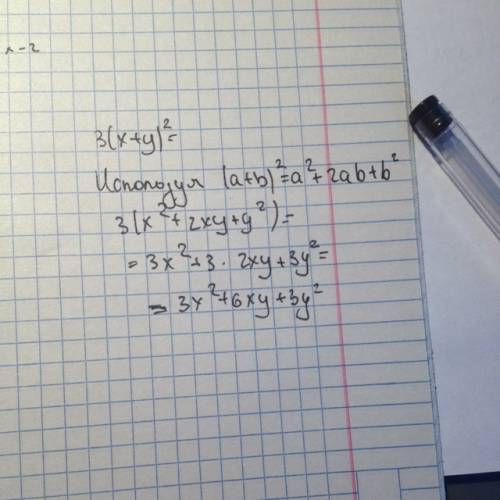 3(x+y)²=
Используя (a+b)²=a²+2ab+b²
3(x²+2xy+y²)=
=3x²+3·2xy+3y²=
=3x²+6xy+3y²